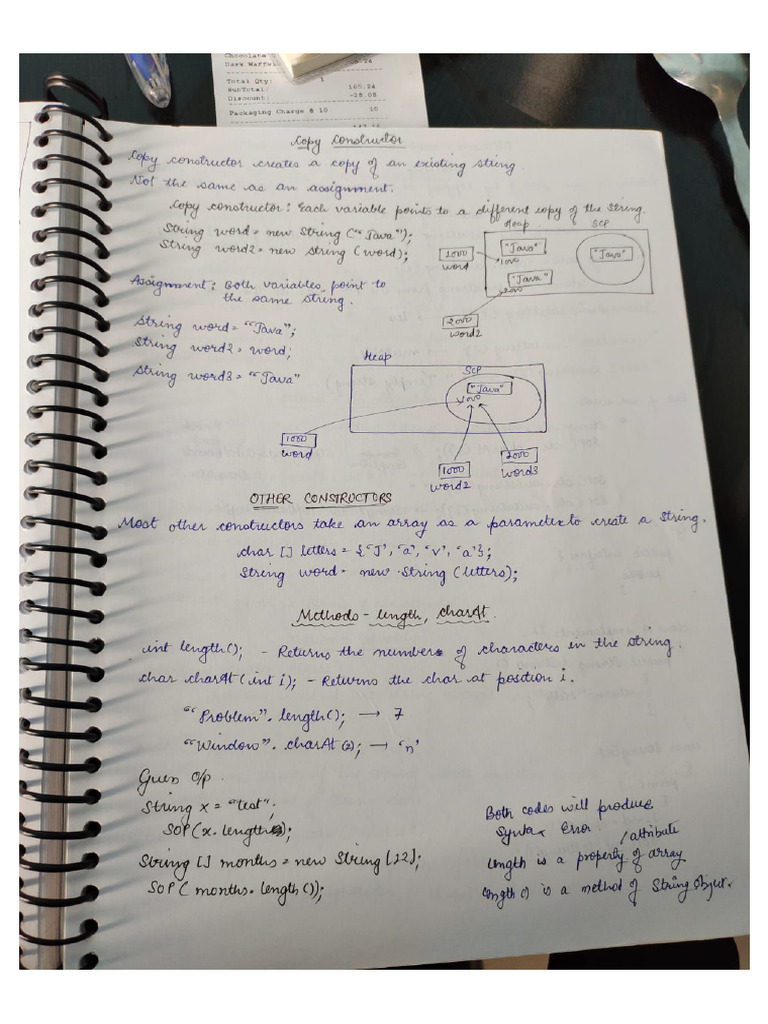 Dark Waffle
Total Qty: 1
SubTotal: 105.24
Discount: -28.08
Packaging Charge @ 10 10
Copy Constructor
Copy constructor creates a copy of an existing string.
Not the same as an assignment.
Copy constructor: Each variable points to a different copy of the String.
String word = new String ("Java");
String word2 = new String (word);
Heap SCP
"Java" "Java"
1000 1000
word
"Java"
2000
2000
word2
Assignment: Both variables point to
the same string.
String word = "Java";
String word2 = word;
String word3 = "Java"
Heap
SCP
"Java"
1000
1000
word
1000
word2
2000
word3
OTHER CONSTRUCTORS
Most other constructors take an array as a parameter to create a String.
char [] letters = {'J', 'a', 'v', 'a'};
String word = new String (letters);
Methods - length, charAt.
int length(); - Returns the number of characters in the string.
char charAt (int i); - Returns the char at position i.
"Problem". length(); → 7
"Window". charAt (2); → 'n'
Guess O/p.
String x = "test";
SOP(x. length);
String [] months = new String [12];
SOP( months. length());
Both codes will produce
Syntax Error.
/attribute
length is a property of array
length() is a method of String Object.